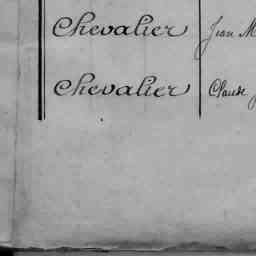 Chevalier Jean M
Chevalier Claude